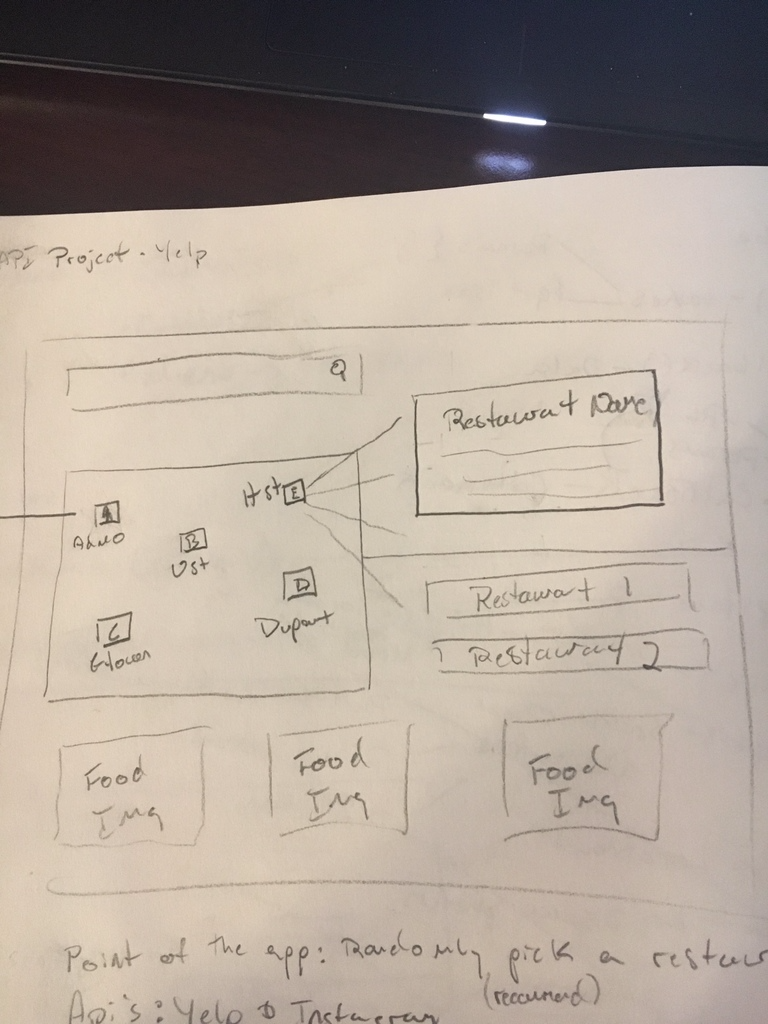 API Project - Yelp
Restaurant Name
H St E
A
B
U St
D
Dupont
C
Restaurant 1
Restaurant 2
Food
Img
Food
Img
Food
Img
Point of the app: Randomly pick a restaur
(reccomend)
Api's: Yelp & Instagram